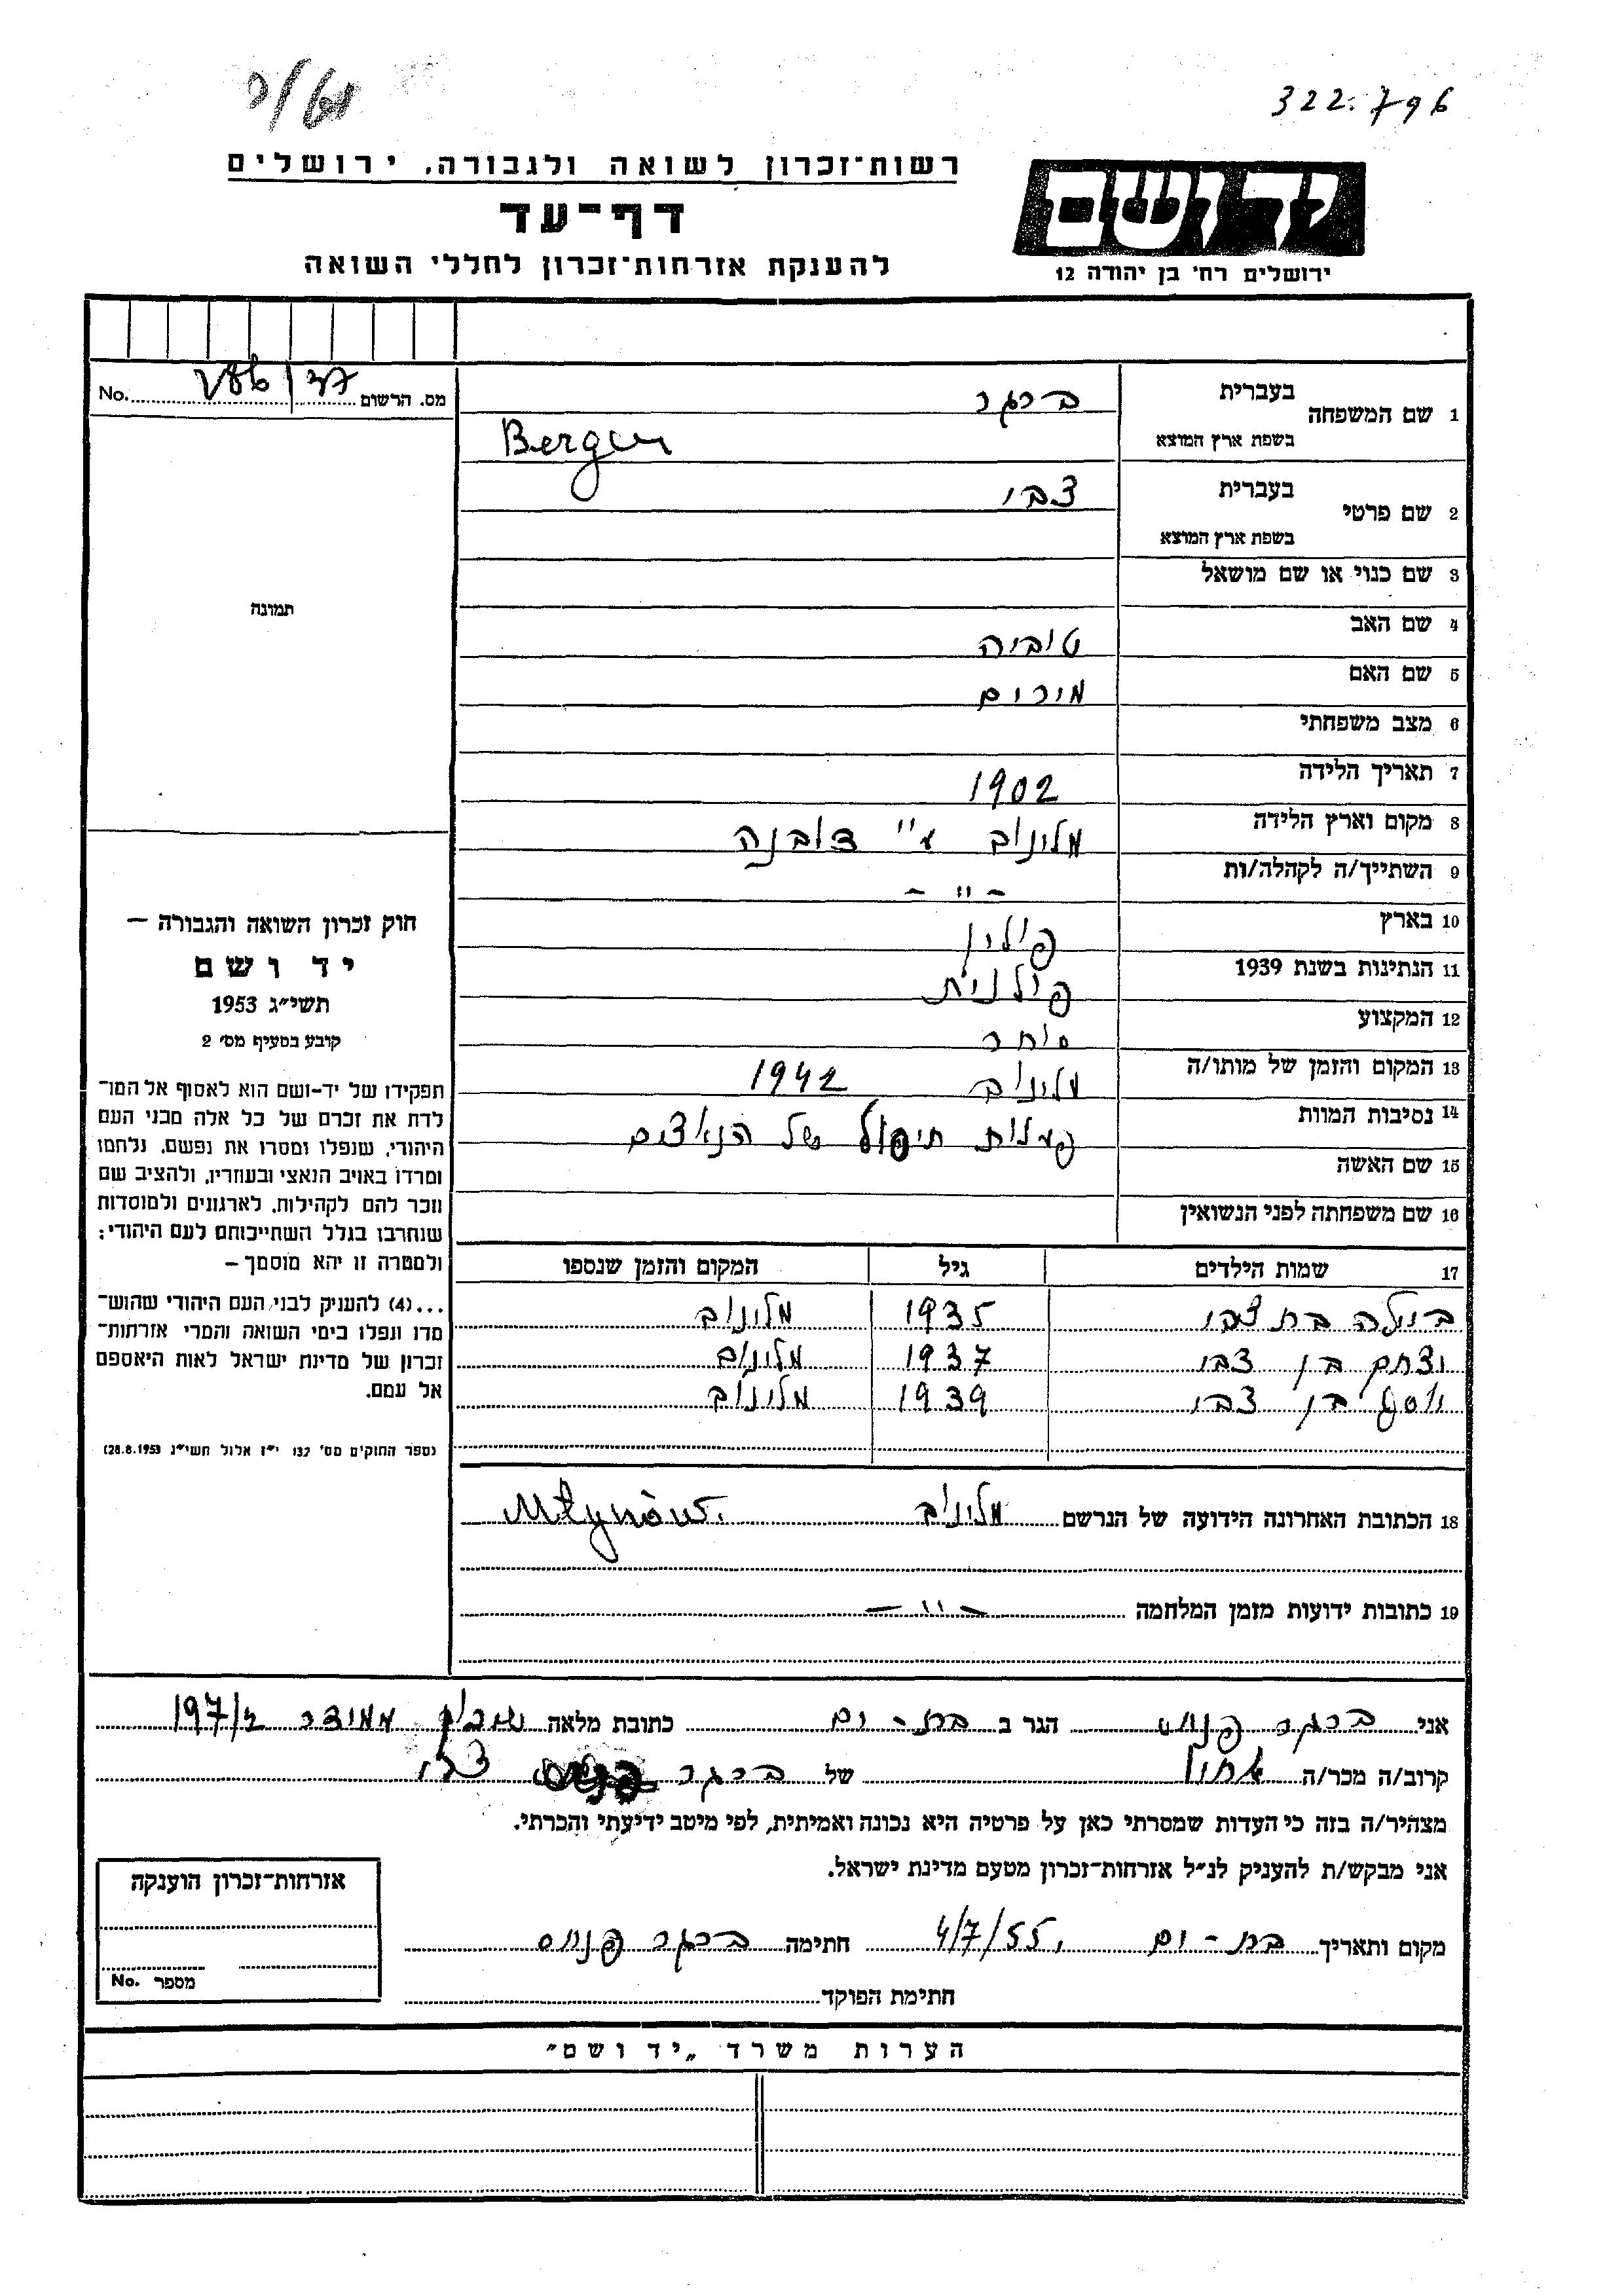 322.796
רשות־זכרון לשואה ולגבורה, ירושלים
דף־עד
להענקת אזרחות־זכרון לחללי השואה
יד ושם
ירושלים רח' בן יהודה 12
מס. הרשום No.
1 שם המשפחה בעברית ברגר
בשפת ארץ המוצא Berger
2 שם פרטי בעברית צבי
בשפת ארץ המוצא
3 שם כנוי או שם מושאל
4 שם האב טוביה
5 שם האם מרים
6 מצב משפחתי
7 תאריך הלידה 1902
8 מקום וארץ הלידה מלינוב ע"י דובנה
9 השתייך/ה לקהלה/ות - " -
10 בארץ פולין
11 הנתינות בשנת 1939 פולנית
12 המקצוע סוחר
13 המקום והזמן של מותו/ה מלינוב 1942
14 נסיבות המוות פעולת חיסול של הנאצים
15 שם האשה
16 שם משפחתה לפני הנשואין
17 שמות הילדים גיל המקום והזמן שנספו
ביילה בת צבי 1935 מלינוב
יצחק בן צבי 1937 מלינוב
יוסף בן צבי 1939 מלינוב
18 הכתובת האחרונה הידועה של הנרשם מלינוב Młynów.
19 כתובות ידועות מזמן המלחמה - " -
תמונה
חוק זכרון השואה והגבורה –
יד ושם
תשי"ג 1953
קובע בסעיף מס' 2
תפקידו של יד-ושם הוא לאסוף אל המו־
לדת את זכרם של כל אלה מבני העם
היהודי, שנפלו ומסרו את נפשם, נלחמו
ומרדו באויב הנאצי ובעוזריו, ולהציב שם
וזכר להם לקהילות, לארגונים ולמוסדות
שנחרבו בגלל השתייכותם לעם היהודי;
ולמטרה זו יהא מוסמך –
...(4) להעניק לבני העם היהודי שהוש־
מדו ונפלו בימי השואה והמרי אזרחות־
זכרון של מדינת ישראל לאות היאספם
אל עמם.
(ספר החוקים מס' 132 י"ז אלול תשי"ג 28.8.1953)
אני ברגר פנחס הגר ב בת-ים כתובת מלאה שיכון
קרוב/ה מכר/ה של ברגר צבי
מצהיר/ה בזה כי העדות שמסרתי כאן על פרטיה היא נכונה ואמיתית, לפי מיטב ידיעתי והכרתי.
אני מבקש/ת להעניק לנ"ל אזרחות־זכרון מטעם מדינת ישראל.
מקום ותאריך בת-ים, 4/7/55 חתימה ברגר פנחס
חתימת הפוקד
אזרחות־זכרון הוענקה
מספר No.
הערות משרד „יד ושם"